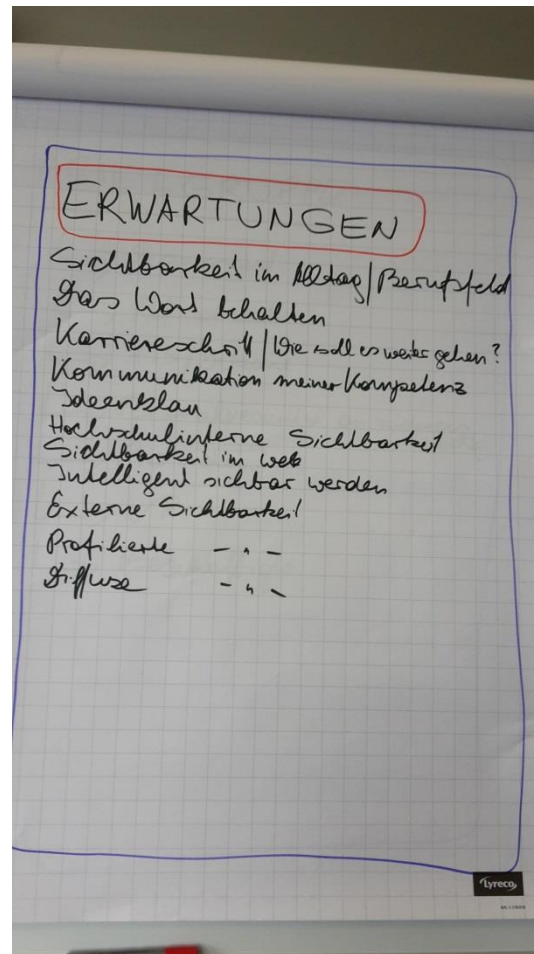 ERWARTUNGEN
Sichtbarkeit im Alltag/Berufsfeld
Das Wort behalten
Karriereschritt/Wie soll es weiter gehen?
Kommunikation meiner Kompetenz
Ideenklau
Hochschulinterne Sichtbarkeit
Sichtbarkeit im web
Intelligent sichtbar werden
Externe Sichtbarkeit
Profilierte - " -
Diffuse - " -
Lyreco